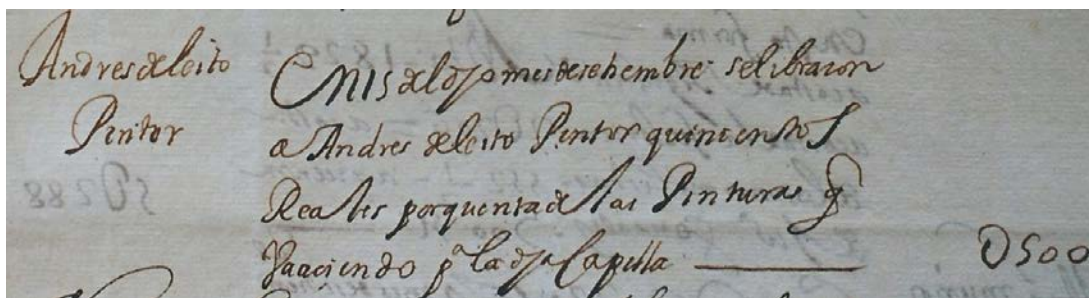 Andres deleito
Pintor
En 15 del dho mes de setiembre se libraron
a Andres deleito Pintor quinientos
Reales por quenta de las Pinturas q
Va aciendo pª la dha Capilla
D500